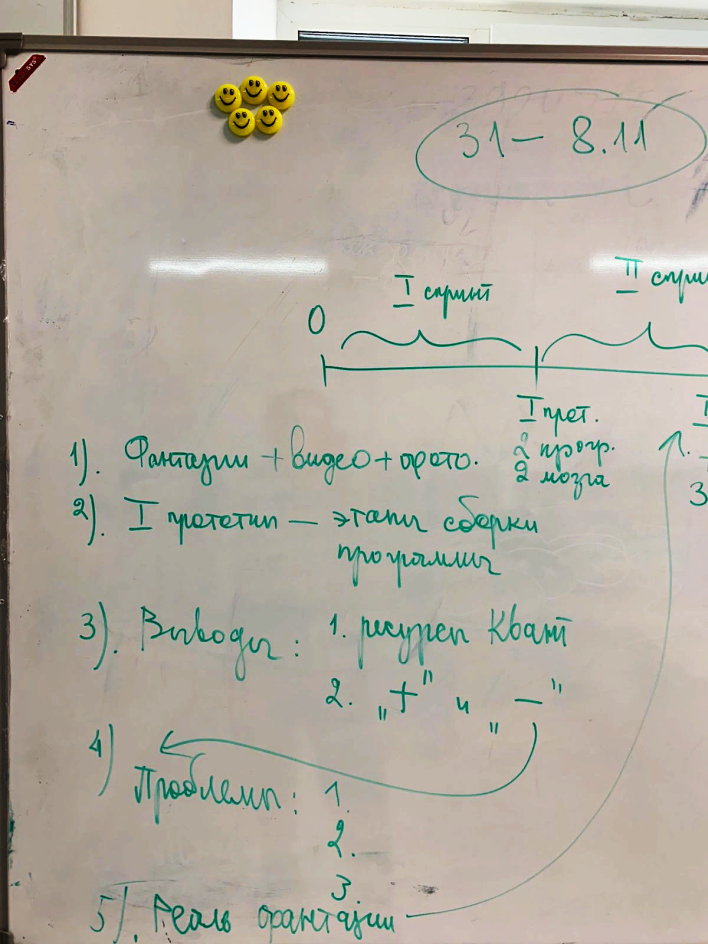 31 – 8.11
I спринт
II спри
0
I прот.
2 прогр.
2 мозга
3
1). Фантазии + видео + фото.
2). I прототип – этапы сборки
программы
3). Выводы: 1. ресурсы Квант
2. „+" и „–"
4)
Проблемы: 1.
2.
3.
5). Реаль фантазии